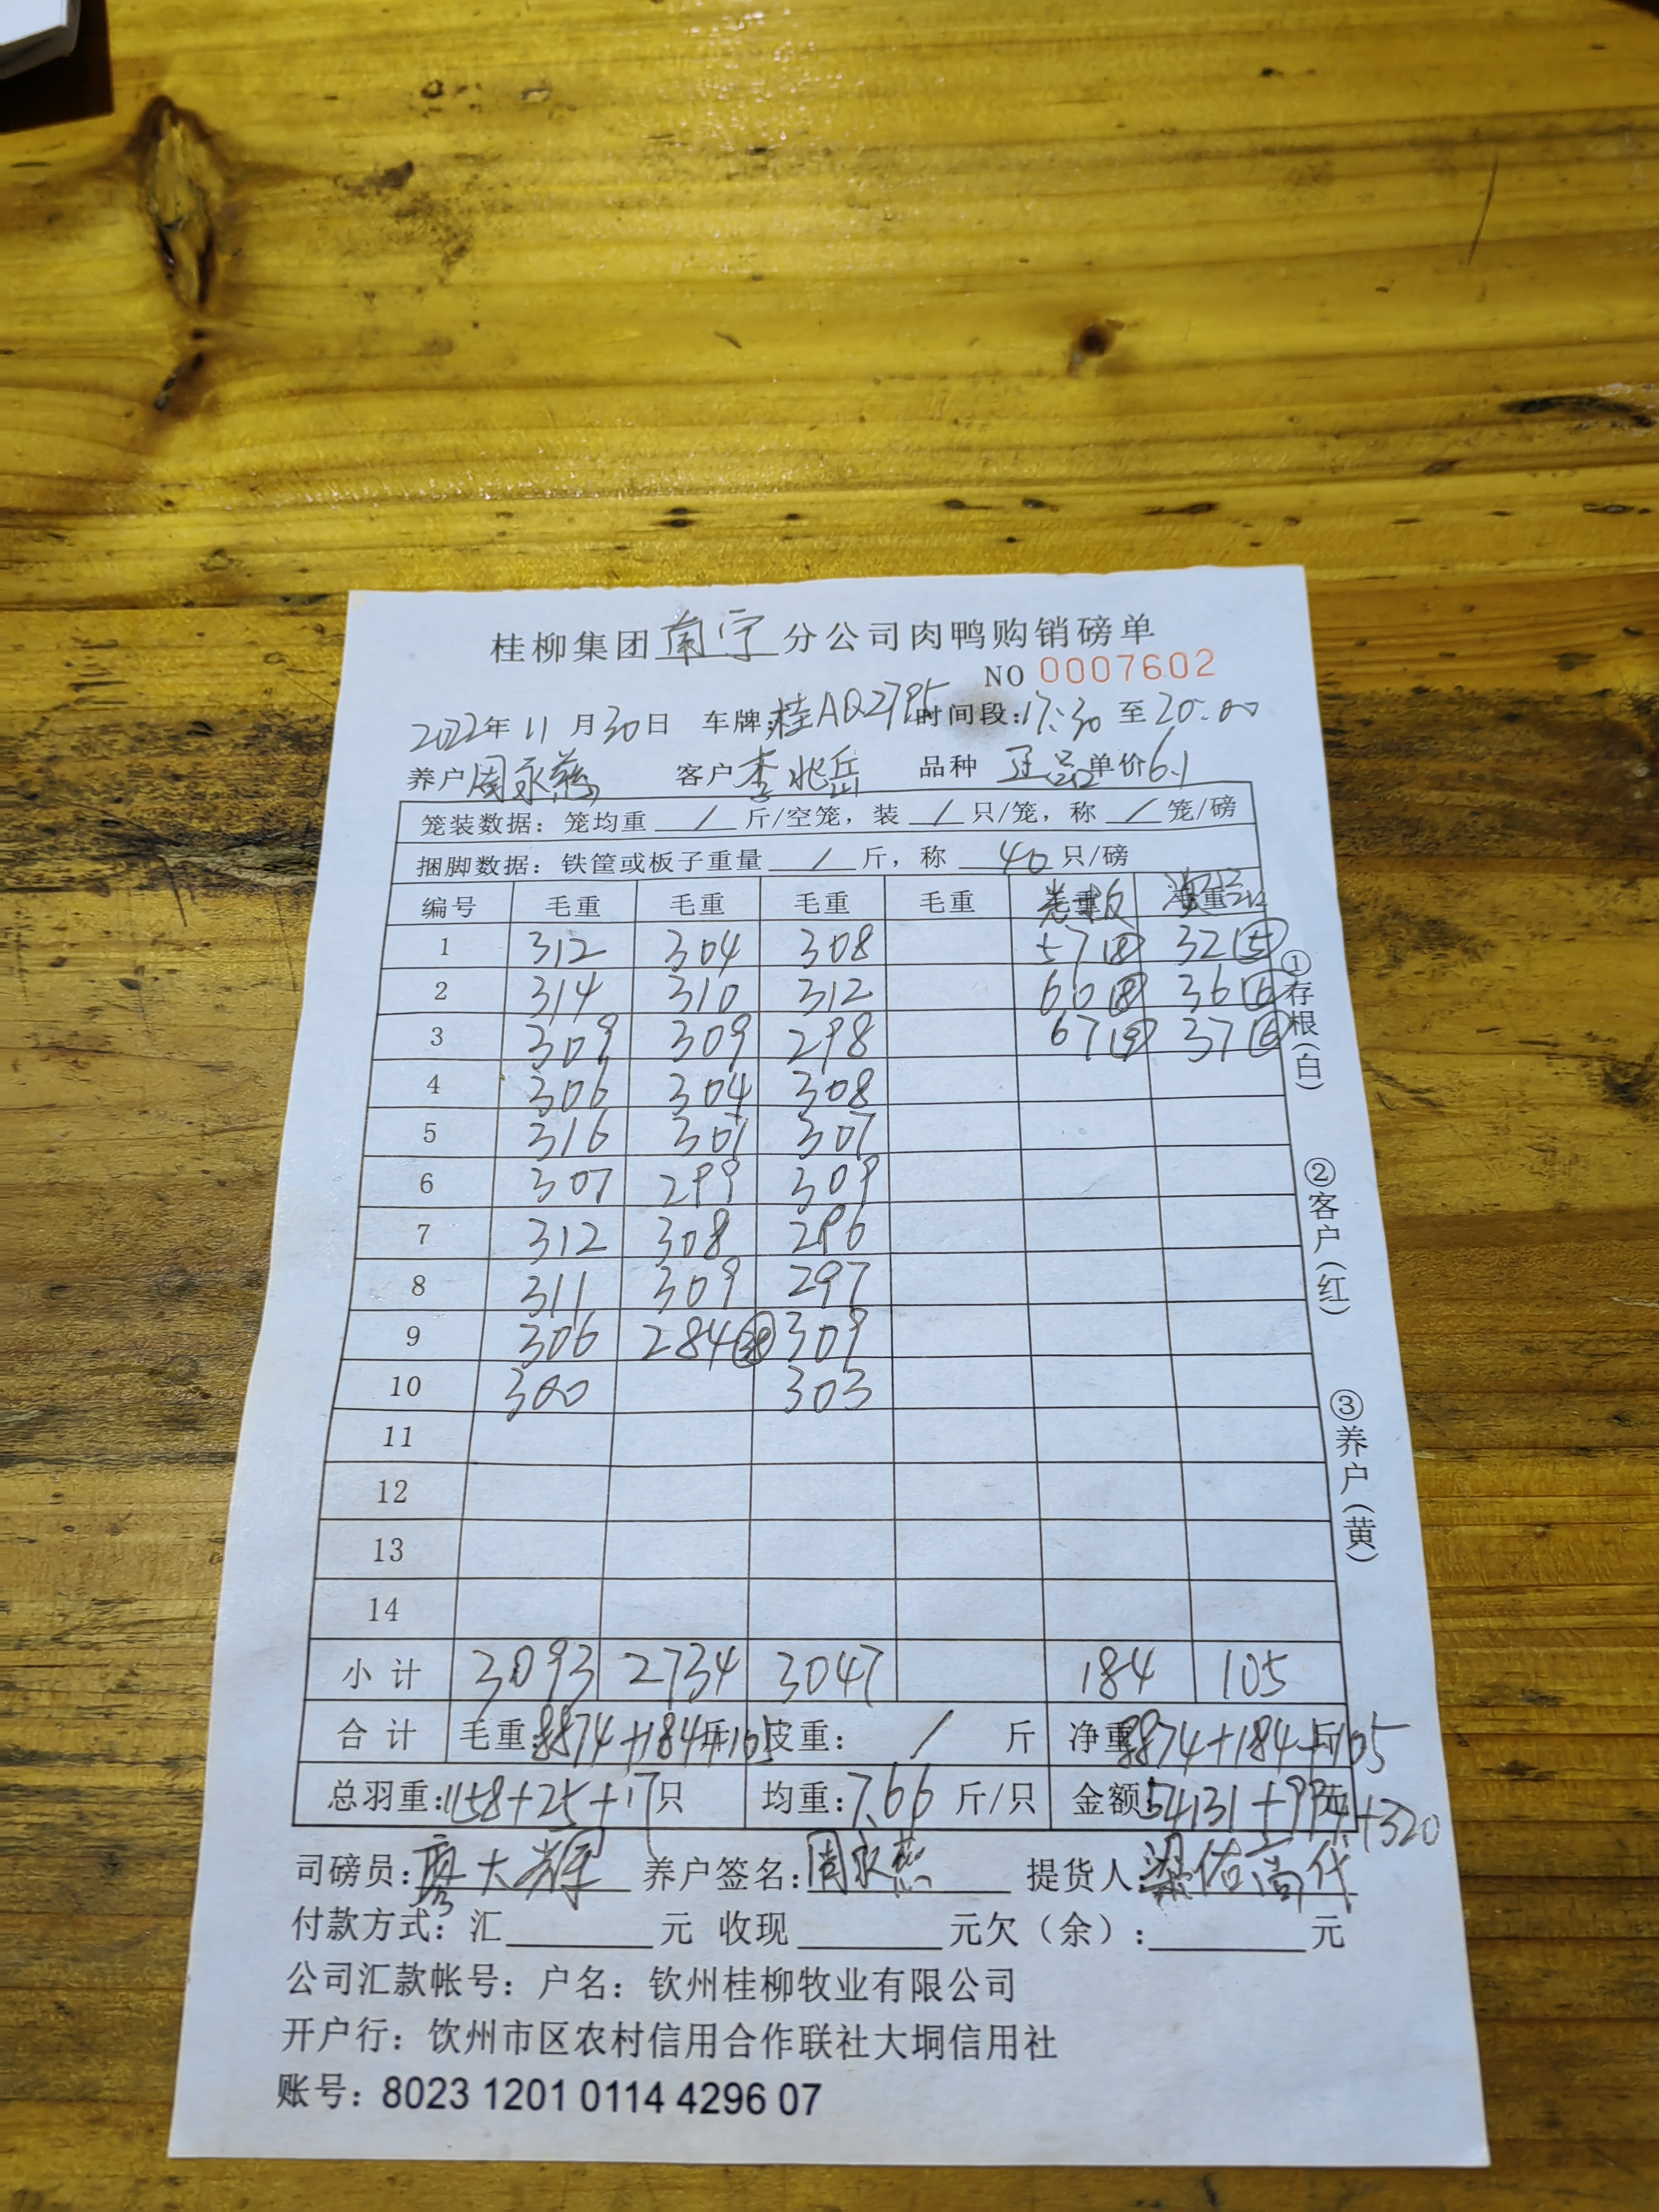 桂柳集团南宁分公司肉鸭购销磅单
NO 0007602
2022年 11 月30日 车牌:桂AQ2795 时间段:17:30 至 20:00
养户 周永燕 客户 李兆岳 品种 正品 单价6.1
笼装数据：笼均重 / 斤/空笼，装 / 只/笼，称 / 笼/磅
捆脚数据：铁筐或板子重量 / 斤，称 40 只/磅
编号 毛重 毛重 毛重 毛重 毛重 净重
1 312 304 308 57⑧ 32⑤
2 314 310 312 60⑧ 36⑥
3 309 309 298 67⑨ 37⑥
4 306 304 308
5 316 307 307
6 307 299 309
7 312 308 296
8 311 309 297
9 306 284㊳ 309
10 300 303
11
12
13
14
小计 3093 2734 3047 184 105
合计 毛重:8874+184+105斤 皮重: / 斤 净重:8874+184+105斤
总羽重:1158+25+17只 均重:7.66 斤/只 金额:54131+994+320元
司磅员:廖大辉 养户签名:周永燕 提货人:梁佑高代
付款方式：汇 元 收现 元欠（余）: 元
公司汇款帐号：户名：钦州桂柳牧业有限公司
开户行：饮州市区农村信用合作联社大垌信用社
账号：8023 1201 0114 4296 07
①存根(白)
②客户(红)
③养户(黄)